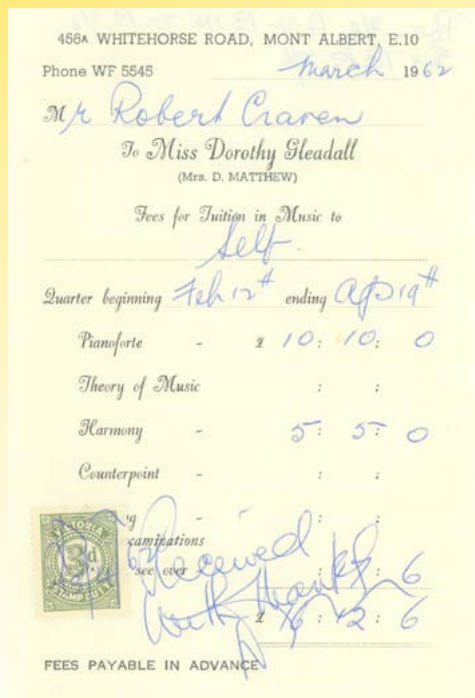 456A WHITEHORSE ROAD, MONT ALBERT, E.10
Phone WF 5545 March 1962
Mr Robert Craven
To Miss Dorothy Gleadall
(Mrs. D. MATTHEW)
Fees for Tuition in Music to
Self.
Quarter beginning Feb 12th ending Apr 19th
Pianoforte - £ 10: 10: 0
Theory of Music : :
Harmony - 5: 5: 0
Counterpoint - : :
- : :
VICTORIA
3d
STAMP DUTY
Received
with thanks
see over : : 6
£ 16: 2: 6
FEES PAYABLE IN ADVANCE